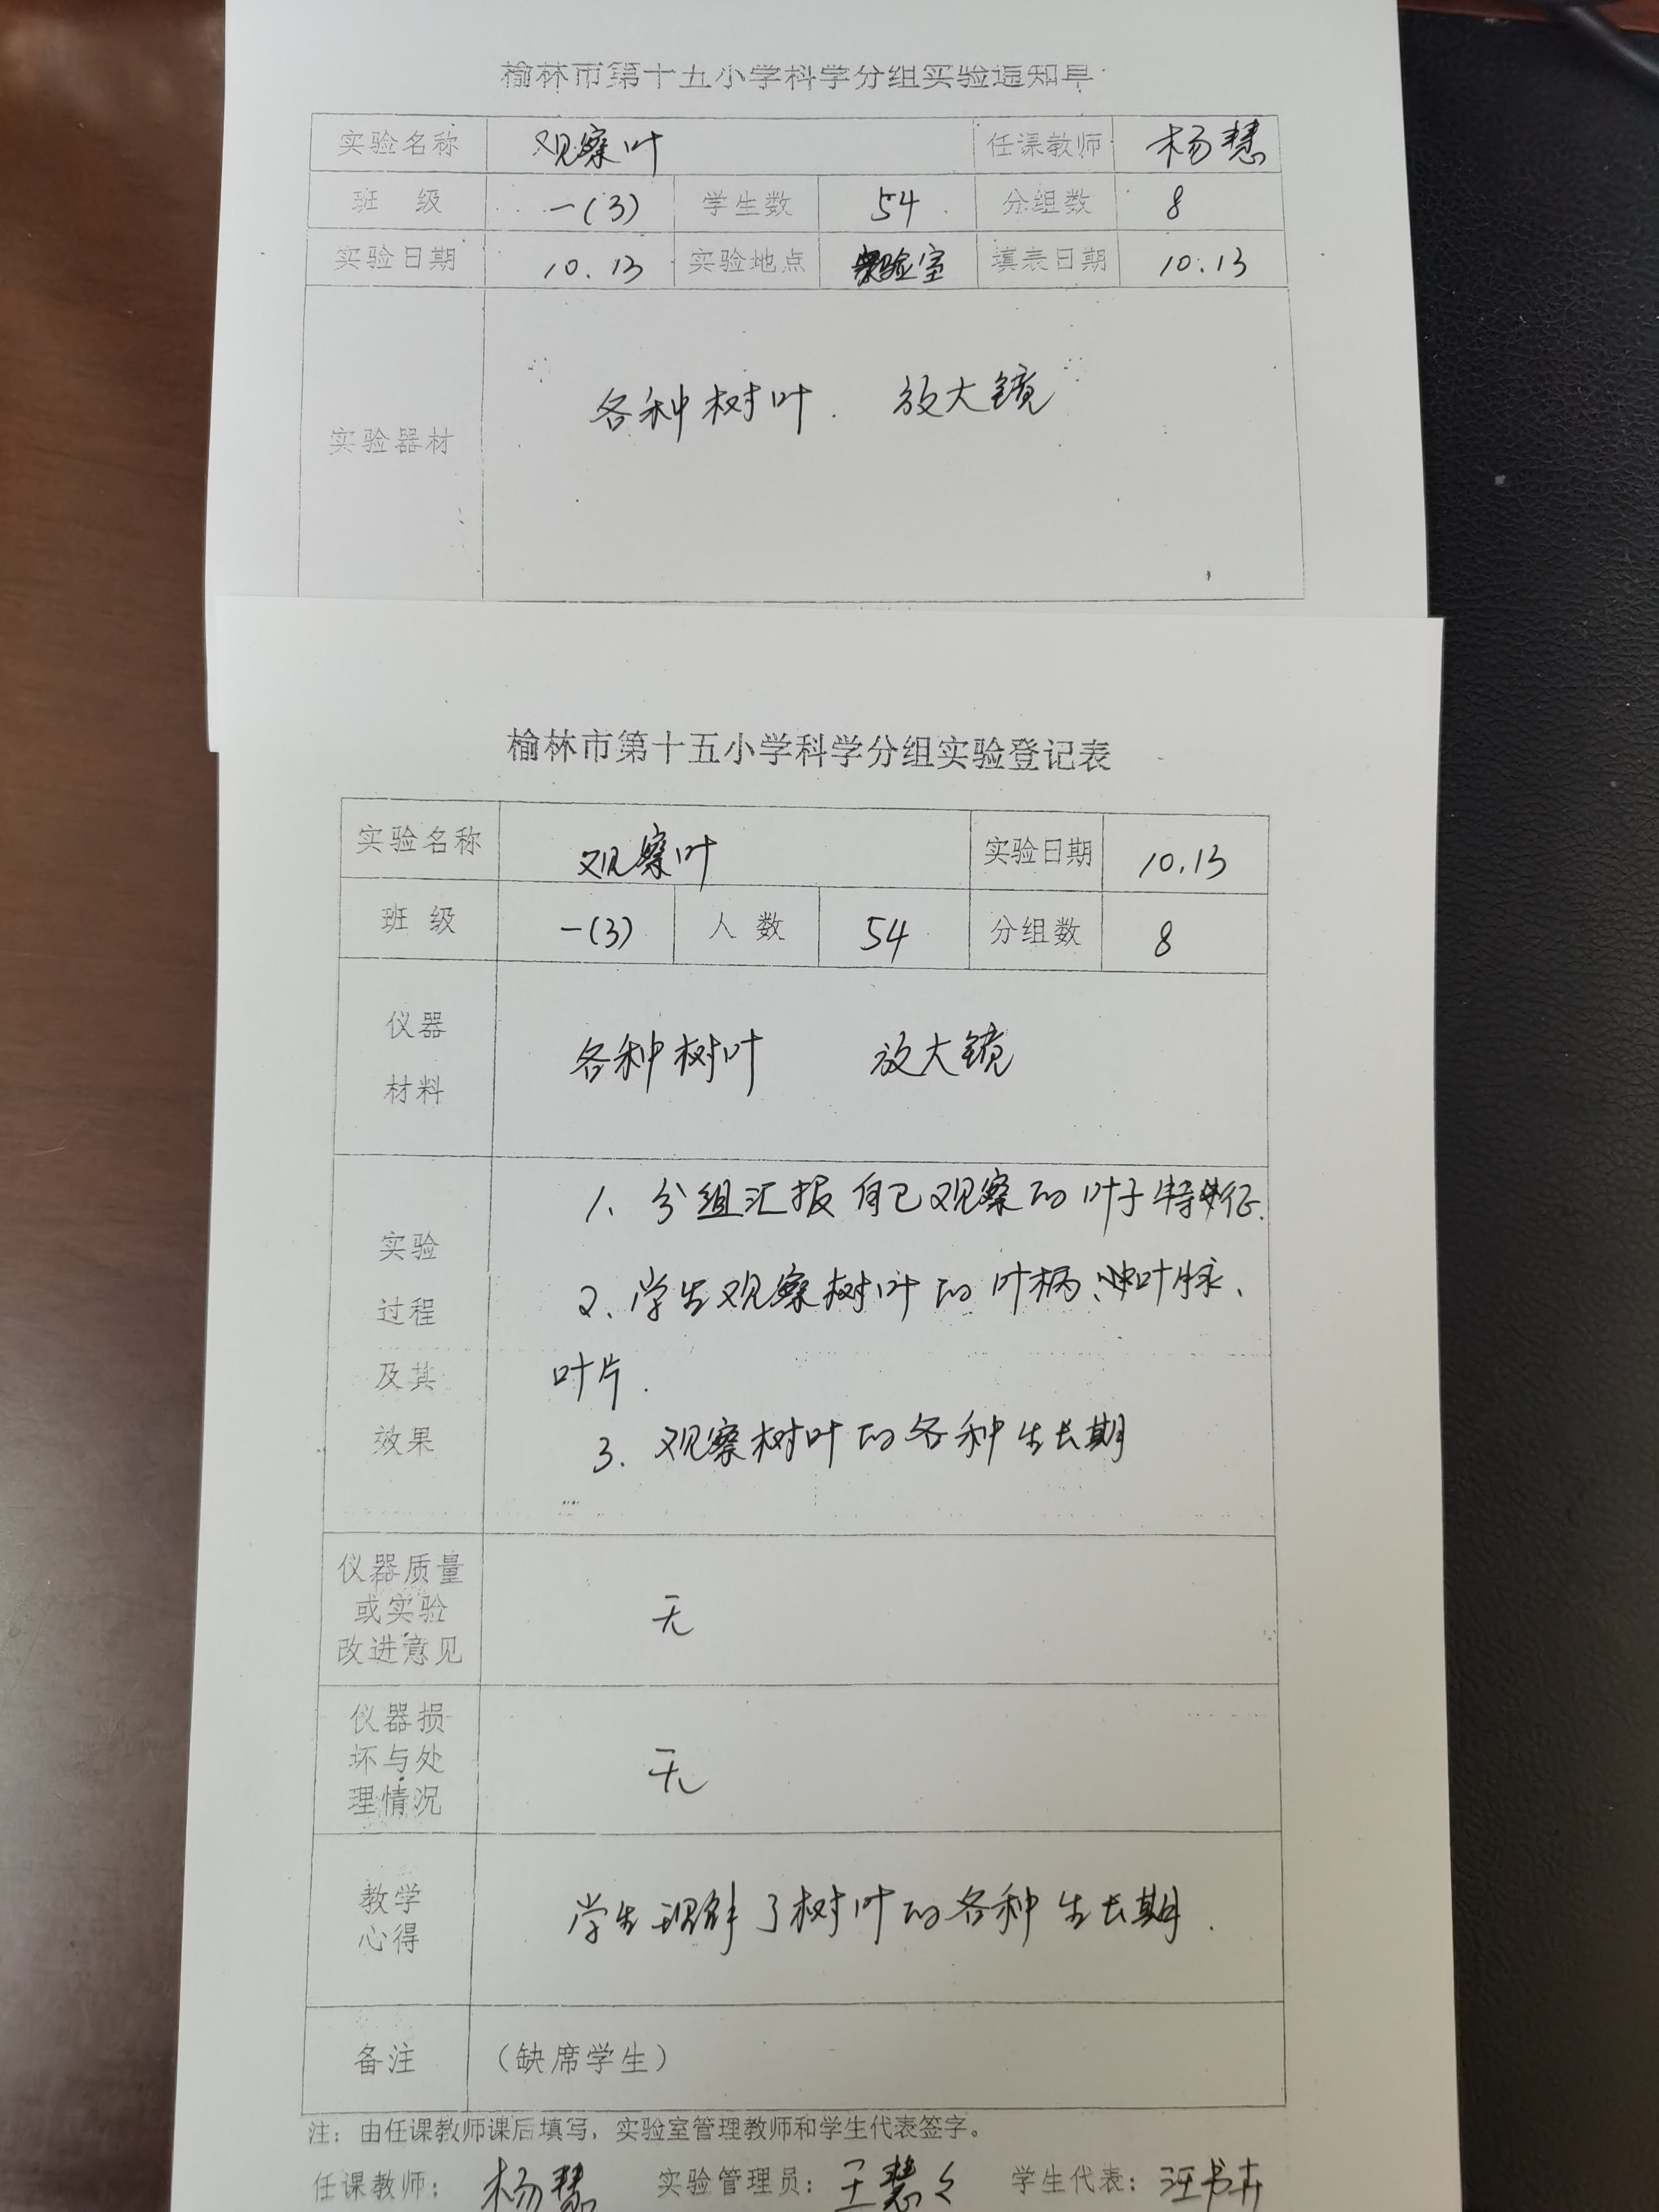 榆林市第十五小学科学分组实验通知单
实验名称 观察叶 任课教师 杨慧
班 级 一(3) 学生数 54 分组数 8
实验日期 10.13 实验地点 实验室 填表日期 10.13
各种树叶. 放大镜
实验器材
榆林市第十五小学科学分组实验登记表
实验名称 观察叶 实验日期 10.13
班 级 一(3) 人 数 54 分组数 8
仪器
材料
各种树叶 放大镜
实验
过程
及其
效果
1、分组汇报自己观察的叶子特征.
2、学生观察树叶的叶柄、叶脉、
叶片.
3. 观察树叶的各种生长期
仪器质量
或实验
改进意见
无
仪器损
坏与处
理情况
无
教学
心得
学生理解了树叶的各种生长期.
备注 (缺席学生)
注：由任课教师课后填写，实验室管理教师和学生代表签字。
任课教师： 杨慧 实验管理员：王慧 学生代表：汪书